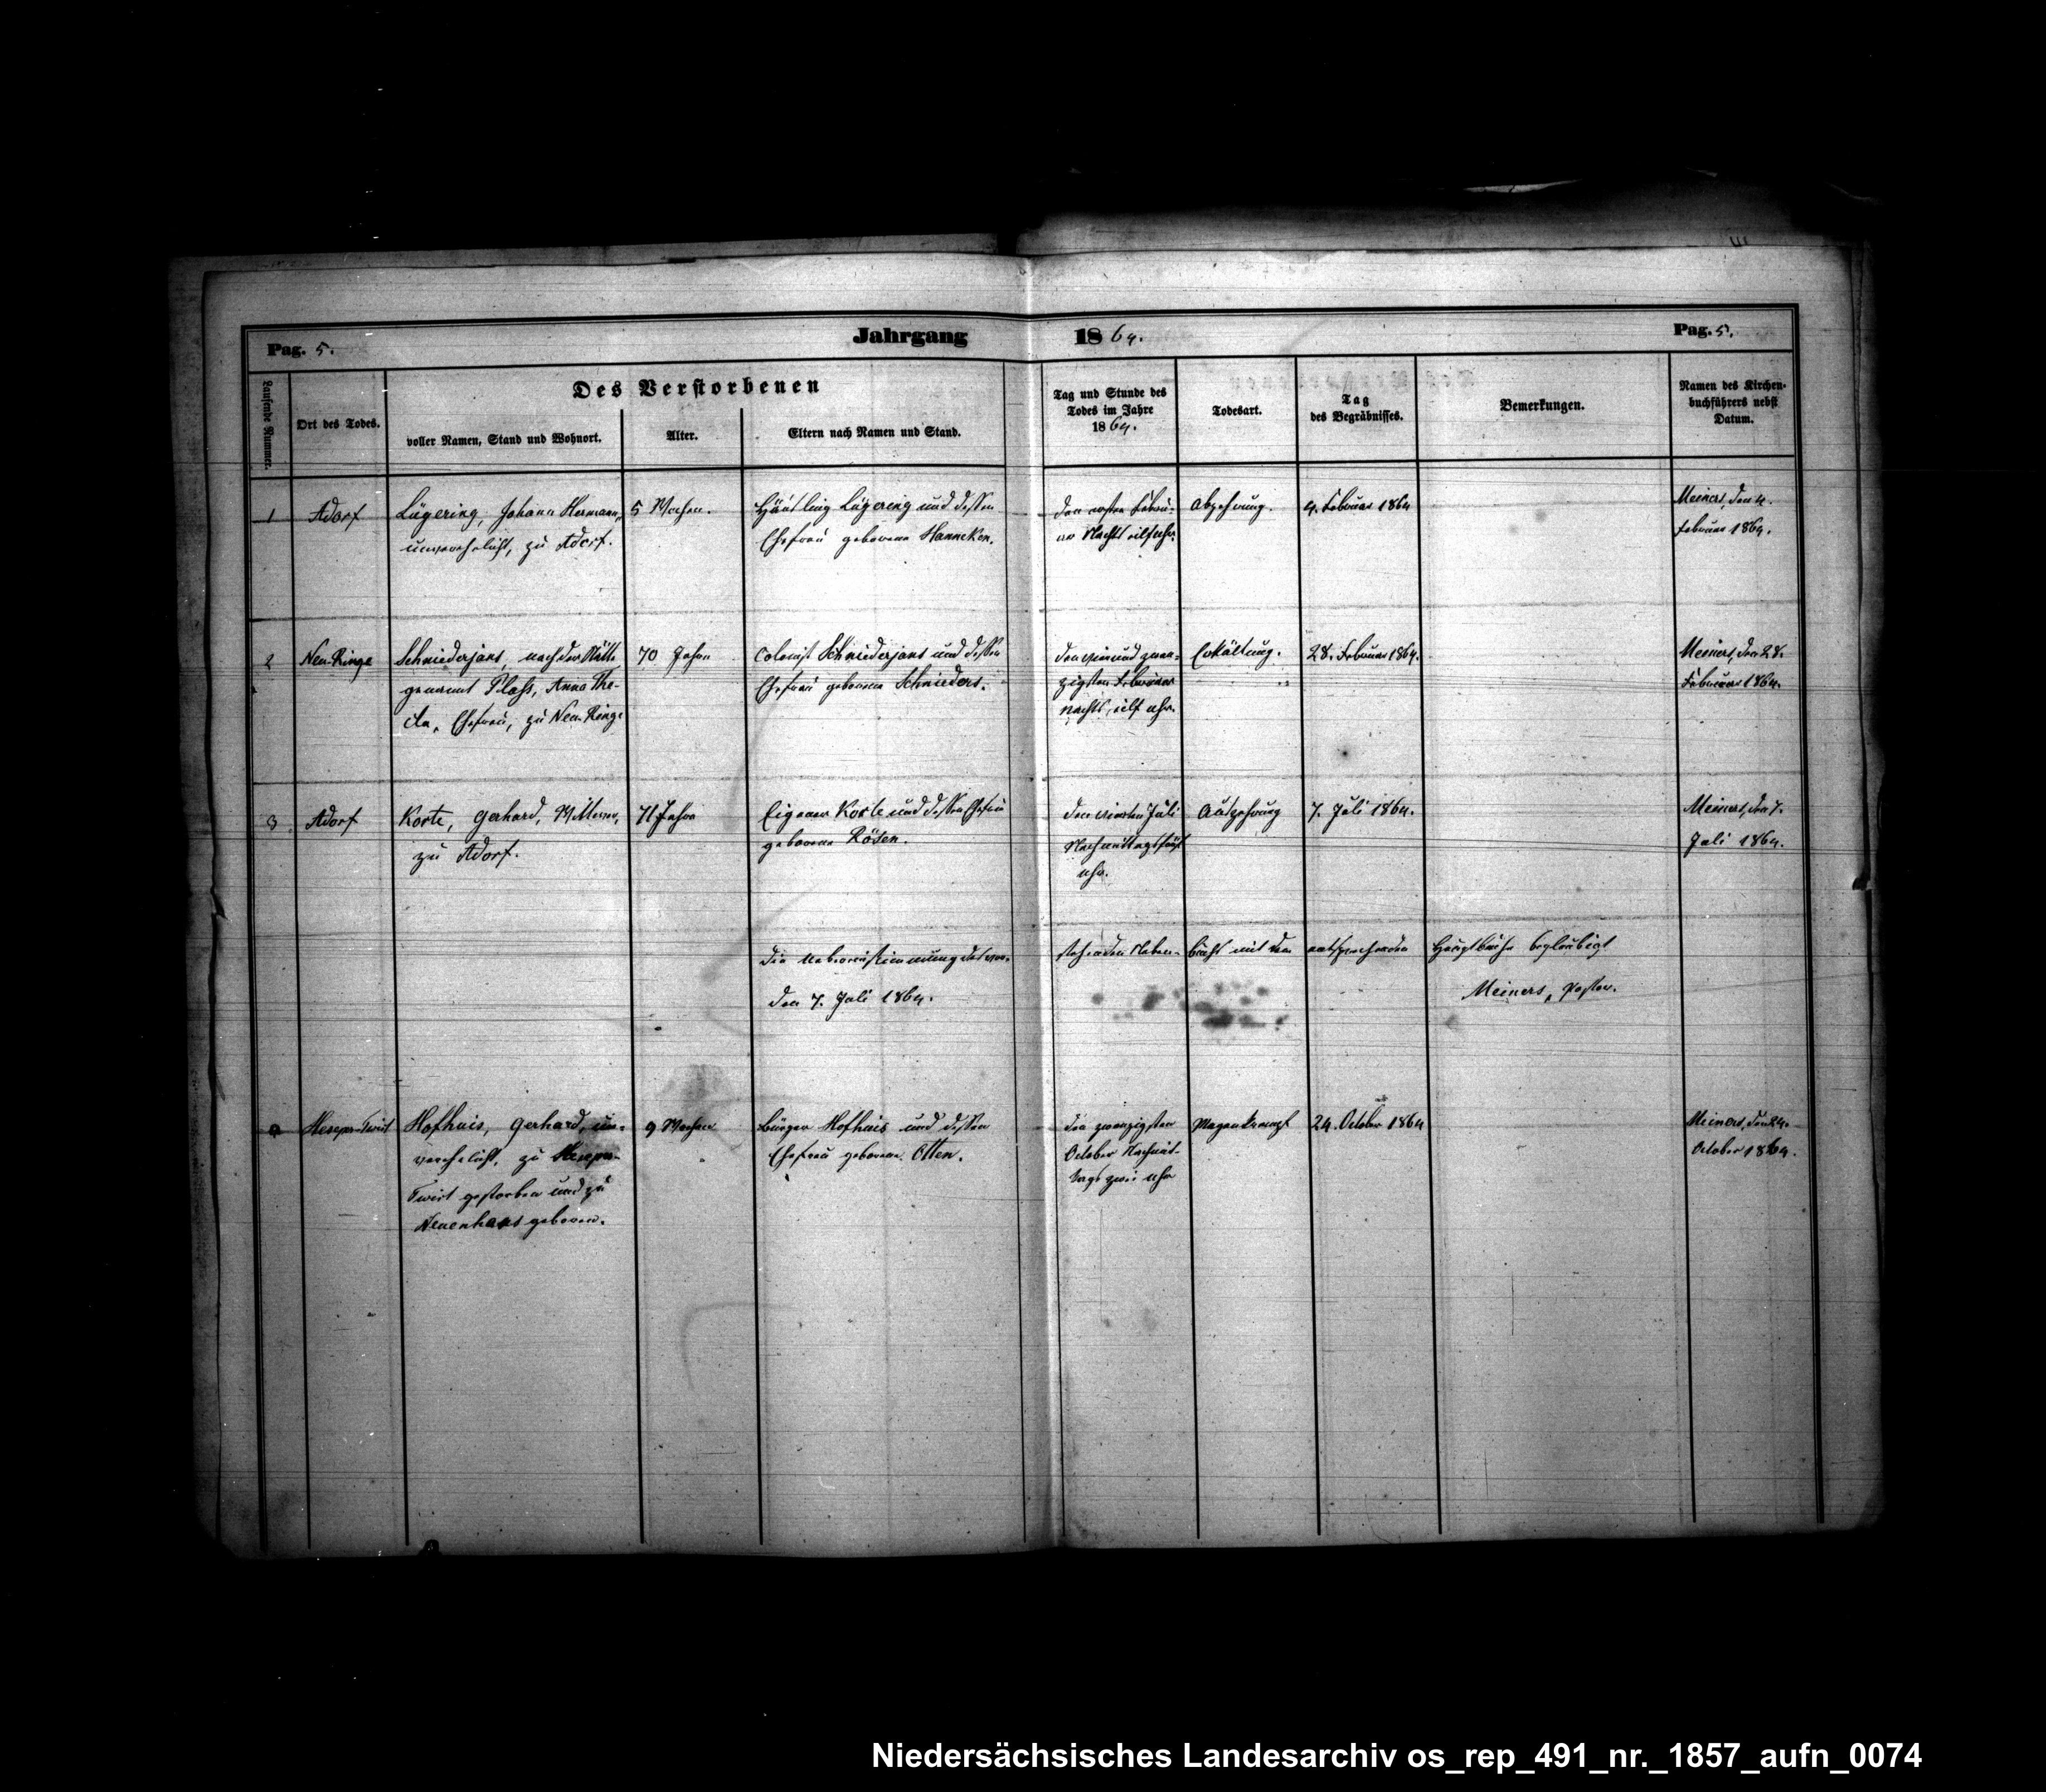 Pag. 5.
Jahrgang 1864.
Pag. 5.
Laufende Nummer.
Ort des Todes.
Des Verstorbenen
voller Namen, Stand und Wohnort.
Alter.
Eltern nach Namen und Stand.
Tag und Stunde des
Todes im Jahre
1864.
Todesart.
Tag
des Begräbnisses.
Bemerkungen.
Namen des Kirchen-
buchführers nebst
Datum.
1
Adorf
Lügering, Johann Hermann,
unverehelicht, zu Adorf.
5 Wochen.
Häusling Lügering und dessen
Ehefrau geborene Hanneken.
den ersten Febru-
ar Nachts eilf Uhr.
Abzehrung.
4. Februar 1864
Meiners, den 4.
Februar 1864.
2
Neu-Ringe
Schniederjans, nach der Stätte
genannt Plass, Anna The-
cla, Ehefrau, zu Neu-Ringe
70 Jahre
Colonist Schniederjans und dessen
Ehefrau geborene Schnieders.
den vierundzwan-
zigsten Februar
Nachts eilf Uhr.
Erkältung.
28. Februar 1864.
Meiners, den 28.
Februar 1864.
3
Adorf
Korte, Gerhard, Wittwer,
zu Adorf.
71 Jahre
Eigener Korte und dessen Ehefrau
geborene Rösen.
den vierten Juli
Nachmittags fünf
Uhr.
Auszehrung
7. Juli 1864.
Meiners, den 7.
Juli 1864.
Die Uebereinstimmung des vor-
stehenden Neben-
buchs mit dem
entsprechenden
Hauptbuche beglaubigt
den 7. Juli 1864.
Meiners, Pastor.
Heseper-Twist
Hofhuis, Gerhard, un-
verehelicht, zu Heseper-
Twist gestorben und zu
Neuenhaus geboren.
9 Wochen
Bürger Hofhuis und dessen
Ehefrau geborene Otten.
den zwanzigsten
October Nachmit-
tags zwei Uhr
Magenkrampf
24. October 1864
Meiners, den 24.
October 1864.
Niedersächsisches Landesarchiv os_rep_491_nr._1857_aufn_0074